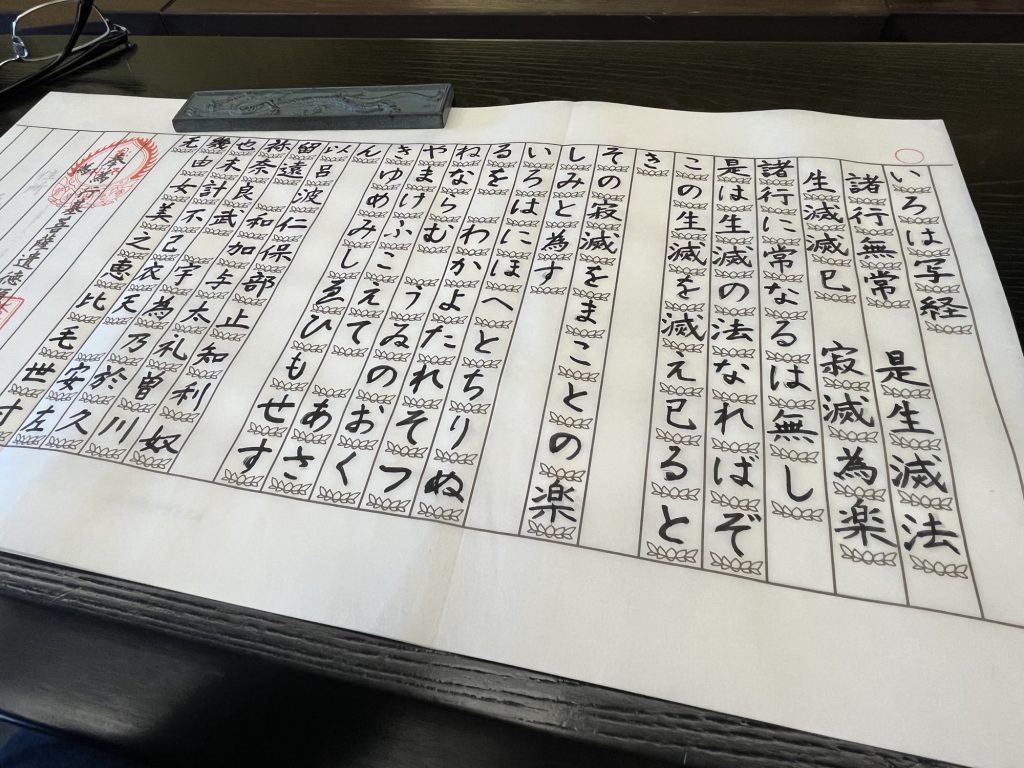 いろは写経
諸行無常　是生滅法
生滅滅已　寂滅為楽
諸行に常なるは無し
是は生滅の法なればぞ
この生滅を滅え已ると
き
その寂滅をまことの楽
しみと為す
いろはにほへとちりぬ
るを　わかよたれそつ
ねならむ　うゐのおく
やまけふこえて　あさ
きゆめみし　ゑひもせす
ん
以呂波仁保部止知利奴
留遠　和加与太礼曽川
祢奈良武　宇為乃於久
也末計不己衣天　安左
幾由女美之　恵比毛世寸
无
奉為
行基菩薩遺徳